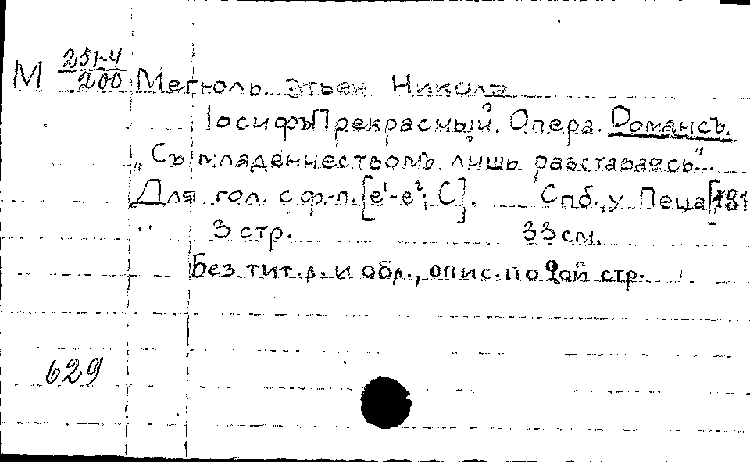 М 251-4/200 Мегюль. Этьен Никола
Iосифъ Прекрасный. Опера. Романсъ.
„Съ младенчествомъ лишь разставаясь"
Для гол. с ф-п. [e¹-e²; С]. Спб., у Пеца
3 стр. 33 см.
Без тит. л. и обл., опис. по 2ой стр.
629